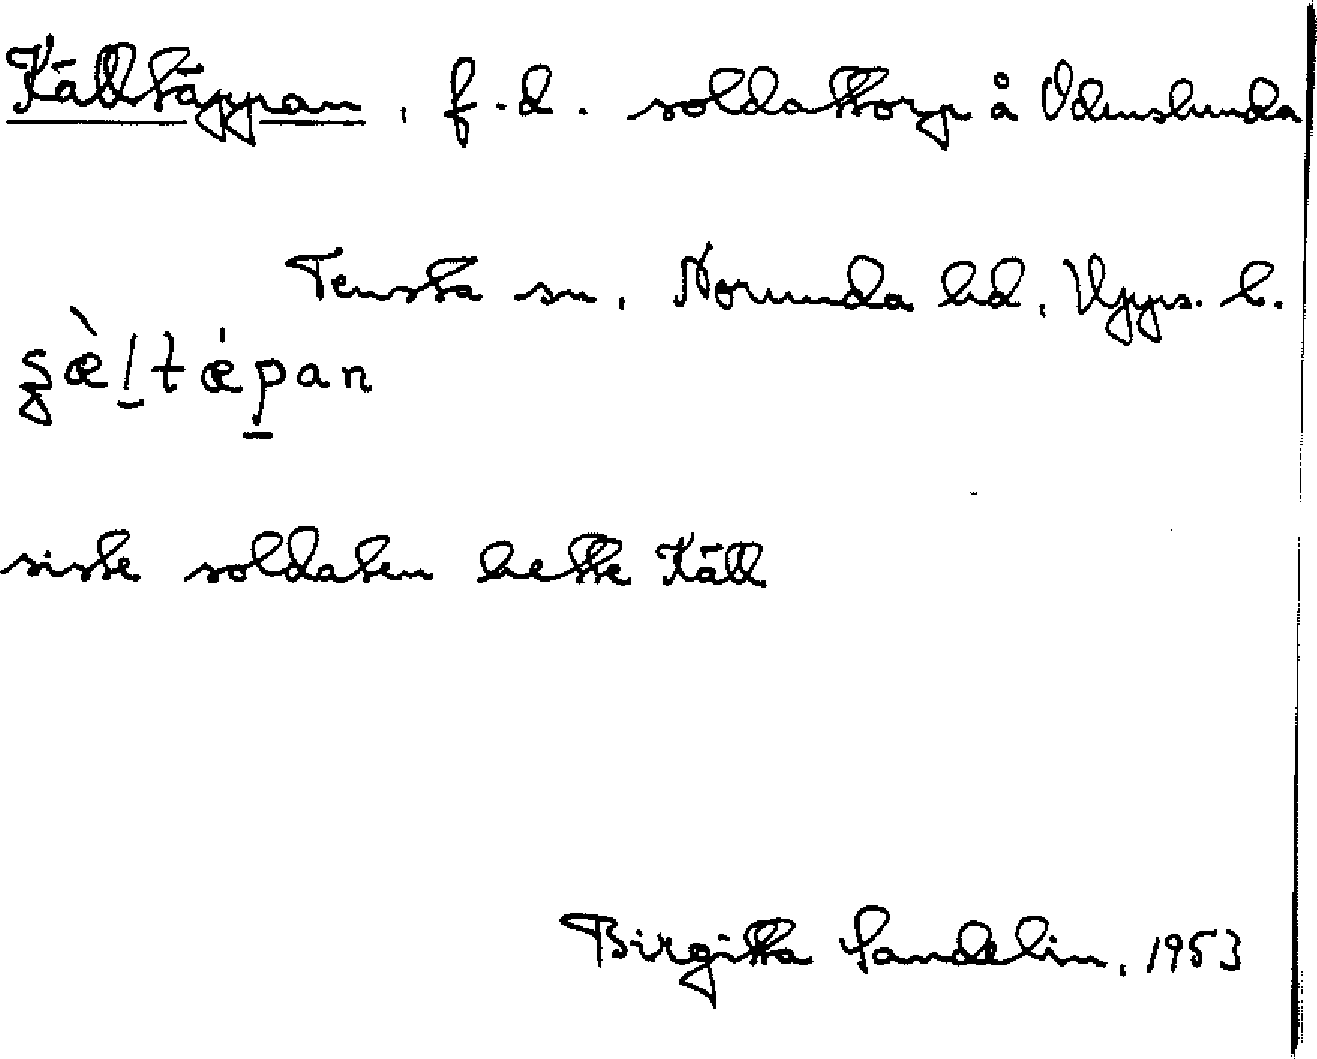 Källtäppan, f.d. soldattorp å Ödenslunda
Tensta sn, Norunda hd, Upps. l.
siste soldaten hette Käll
Birgitta Sandelin, 1953